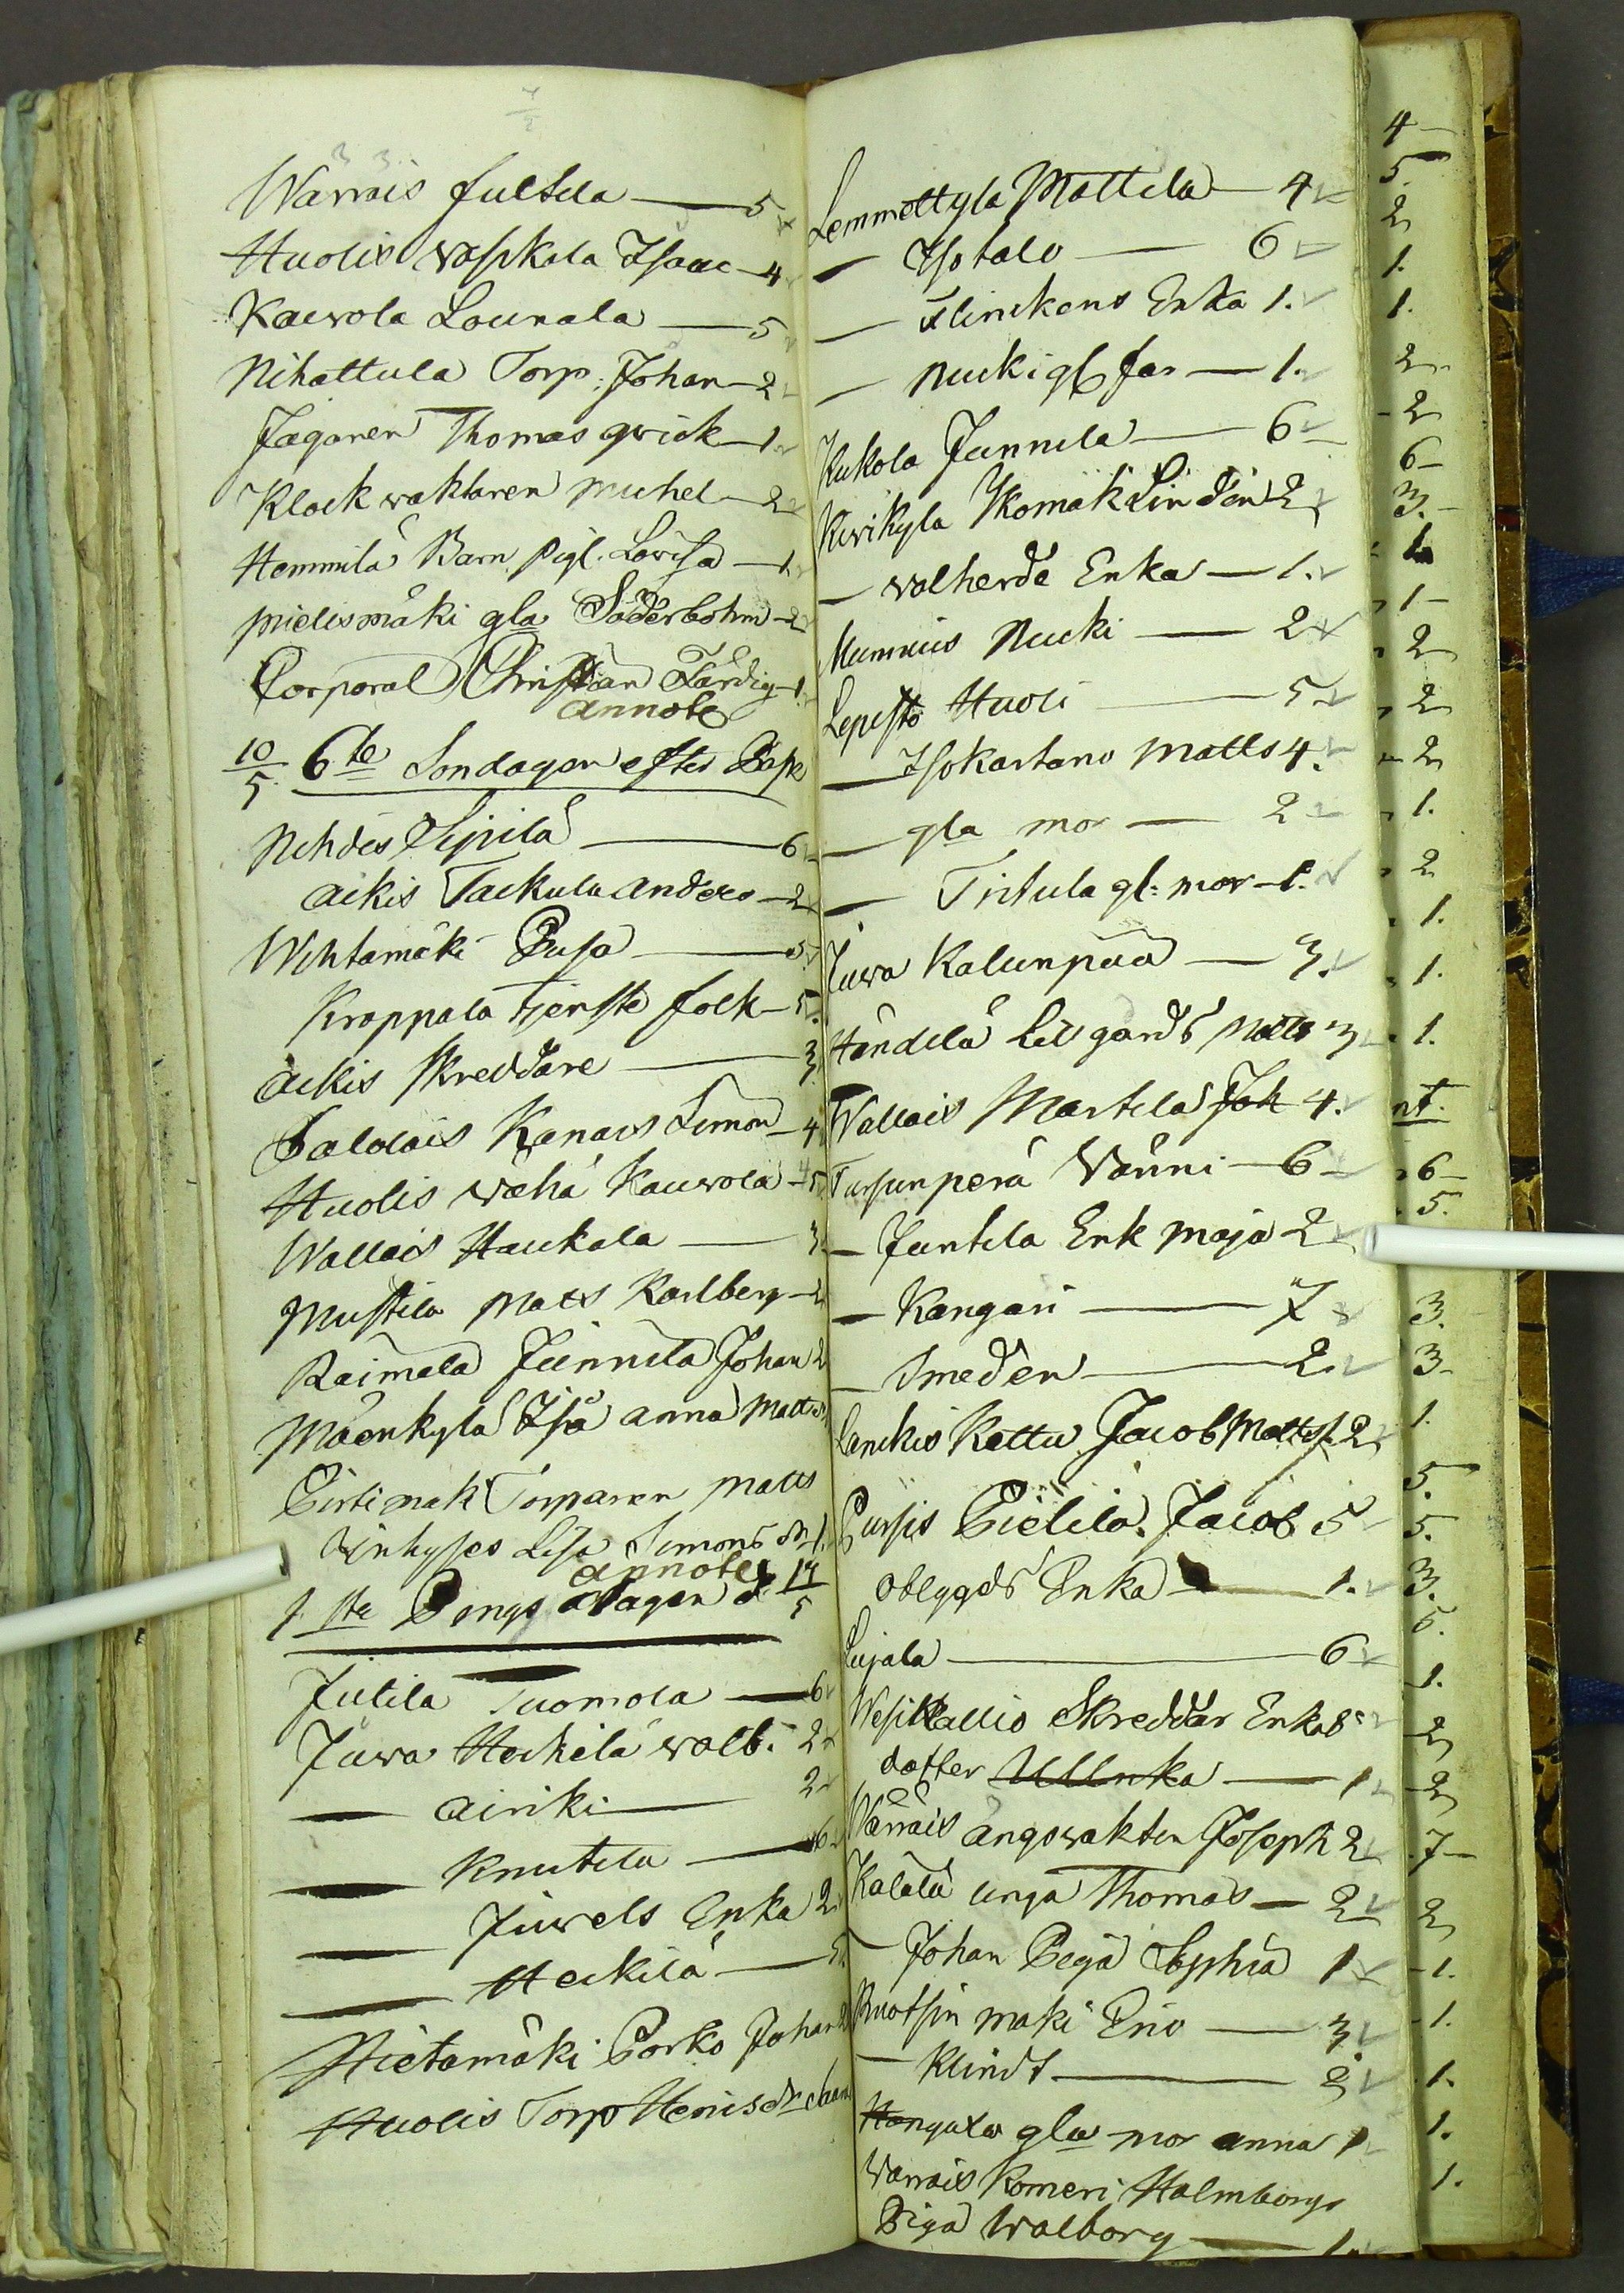 Wärrais Jultila — 5
Huolis Waskala Isaac — 4
Kauvola Lounala — 5
Nihattula Torp: Johan — 2
Jägaren Thomas qvick — 1
Klockvaktaren Michel — 2
Hemmilä Barn pigl. Lovisa — 1
Mielismäki gla Söderbohm — 2
Corporal Christian Färdig — 1
annote
10/5 6te Söndagen efter Påsk
Nihdes Sipilä — 6
aikis Taekula anders — 2
Wihtamäki Pusa — 5
Kroppala Tjenste folk — 5.
aikis Skreddare — 3
Saldais Kanais Simon — 4
Huolis wähä Kauvola — 5
Wallais Haukala — 3
Mustila Mats Karlberg — 2
Raimela Junnila Johan 2
Mäenkylä Isä anna Matts
Pirtimäk Torparen Matts
Inhyses Lisa Simons dr 1.
annote
1 sta Pingsdagen d. 17/5
Jutila Tuomola — 6
Juva Heikilä walb. 2
— airiki — 2
— Knutila — 6
— Juvels Enka 2
— Heikilä — 5
Hietamäki Porko Johan 2
Huolis Torp Henis dr
Lemmettylä Mattila — 4
— Isotalo — 6
— Flinckens Enka 1.
— Nucki gl far — 1.
Kukola Junnila — 6
Kivikyla Komäk Linden 2
— walherde Enka — 1.
Mumius Nucki — 2
Lepistö Huoli — 5
— Isokartano Matts 4.
— gla mor — 2
— Tirtula gl: mor — 1.
Juva Kalunpää — 3.
Händilä Lill gårds Matts 3
Wallais Martila Joh 4.
Tursunperä Vänni — 6
— Juntila Enk Maja 2
— Kangari — 7
— Smeden — 2.
Lankis Kattu Jacob Matts. 2
Pursis Pietilä. Jacob 5
obeygds Enka — 1.
Lujala — 6
Wesikallio Skreddar Enkas
dotter Ullrika — 1
Wärrais ängsvakten Joseph 2
Kalälä unga Thomas — 2
— Johan Piga Sophia 1
Ruotsin mäki Erio — 3
— Klindt — 2
Hongala gla mor anna 1
Warrais Komeri Halmbergs
Piga Walborg — 1.
4 —
5.
2
1.
1.
2
2
6 —
3.
1
1 —
2
2
2
1.
2
1.
1.
1.
nt.
6 —
5.
3.
3.
1.
5.
5.
3.
5.
1.
2
2
7 —
2
1.
1.
1.
1.
1.